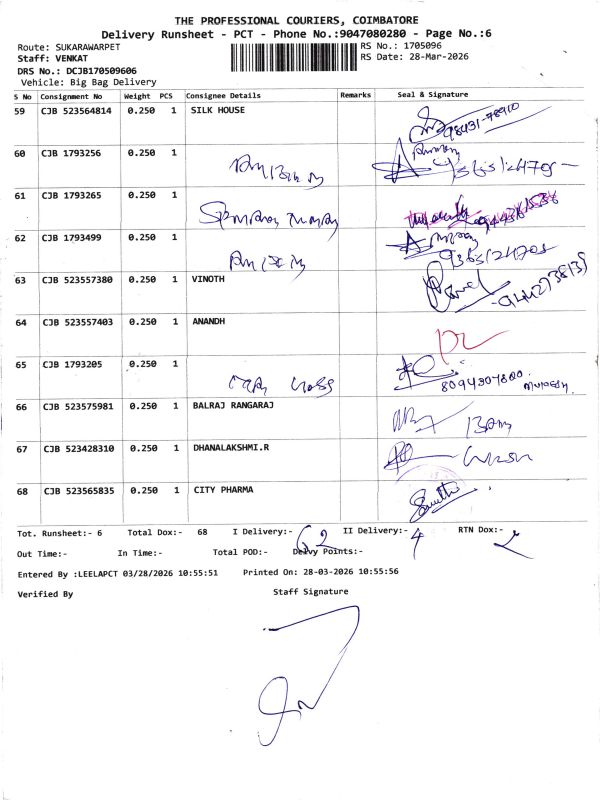 THE PROFESSIONAL COURIERS, COIMBATORE
Delivery Runsheet - PCT - Phone No.:9047080280 - Page No.:6
Route: SUKARAWARPET
RS No.: 1705096
Staff: VENKAT
RS Date: 28-Mar-2026
DRS No.: DCJB170509606
Vehicle: Big Bag Delivery
S No Consignment No Weight PCS Consignee Details Remarks Seal & Signature
59 CJB 523564814 0.250 1 SILK HOUSE
98431-78910
60 CJB 1793256 0.250 1
61 CJB 1793265 0.250 1
62 CJB 1793499 0.250 1
63 CJB 523557380 0.250 1 VINOTH
64 CJB 523557403 0.250 1 ANANDH
65 CJB 1793205 0.250 1
8094307800.
66 CJB 523575981 0.250 1 BALRAJ RANGARAJ
67 CJB 523428310 0.250 1 DHANALAKSHMI.R
68 CJB 523565835 0.250 1 CITY PHARMA
Tot. Runsheet:- 6 Total Dox:- 68 I Delivery:- 62 II Delivery:- 4 RTN Dox:- 2
Out Time:- In Time:- Total POD:- Delvy Points:-
Entered By :LEELAPCT 03/28/2026 10:55:51 Printed On: 28-03-2026 10:55:56
Verified By Staff Signature